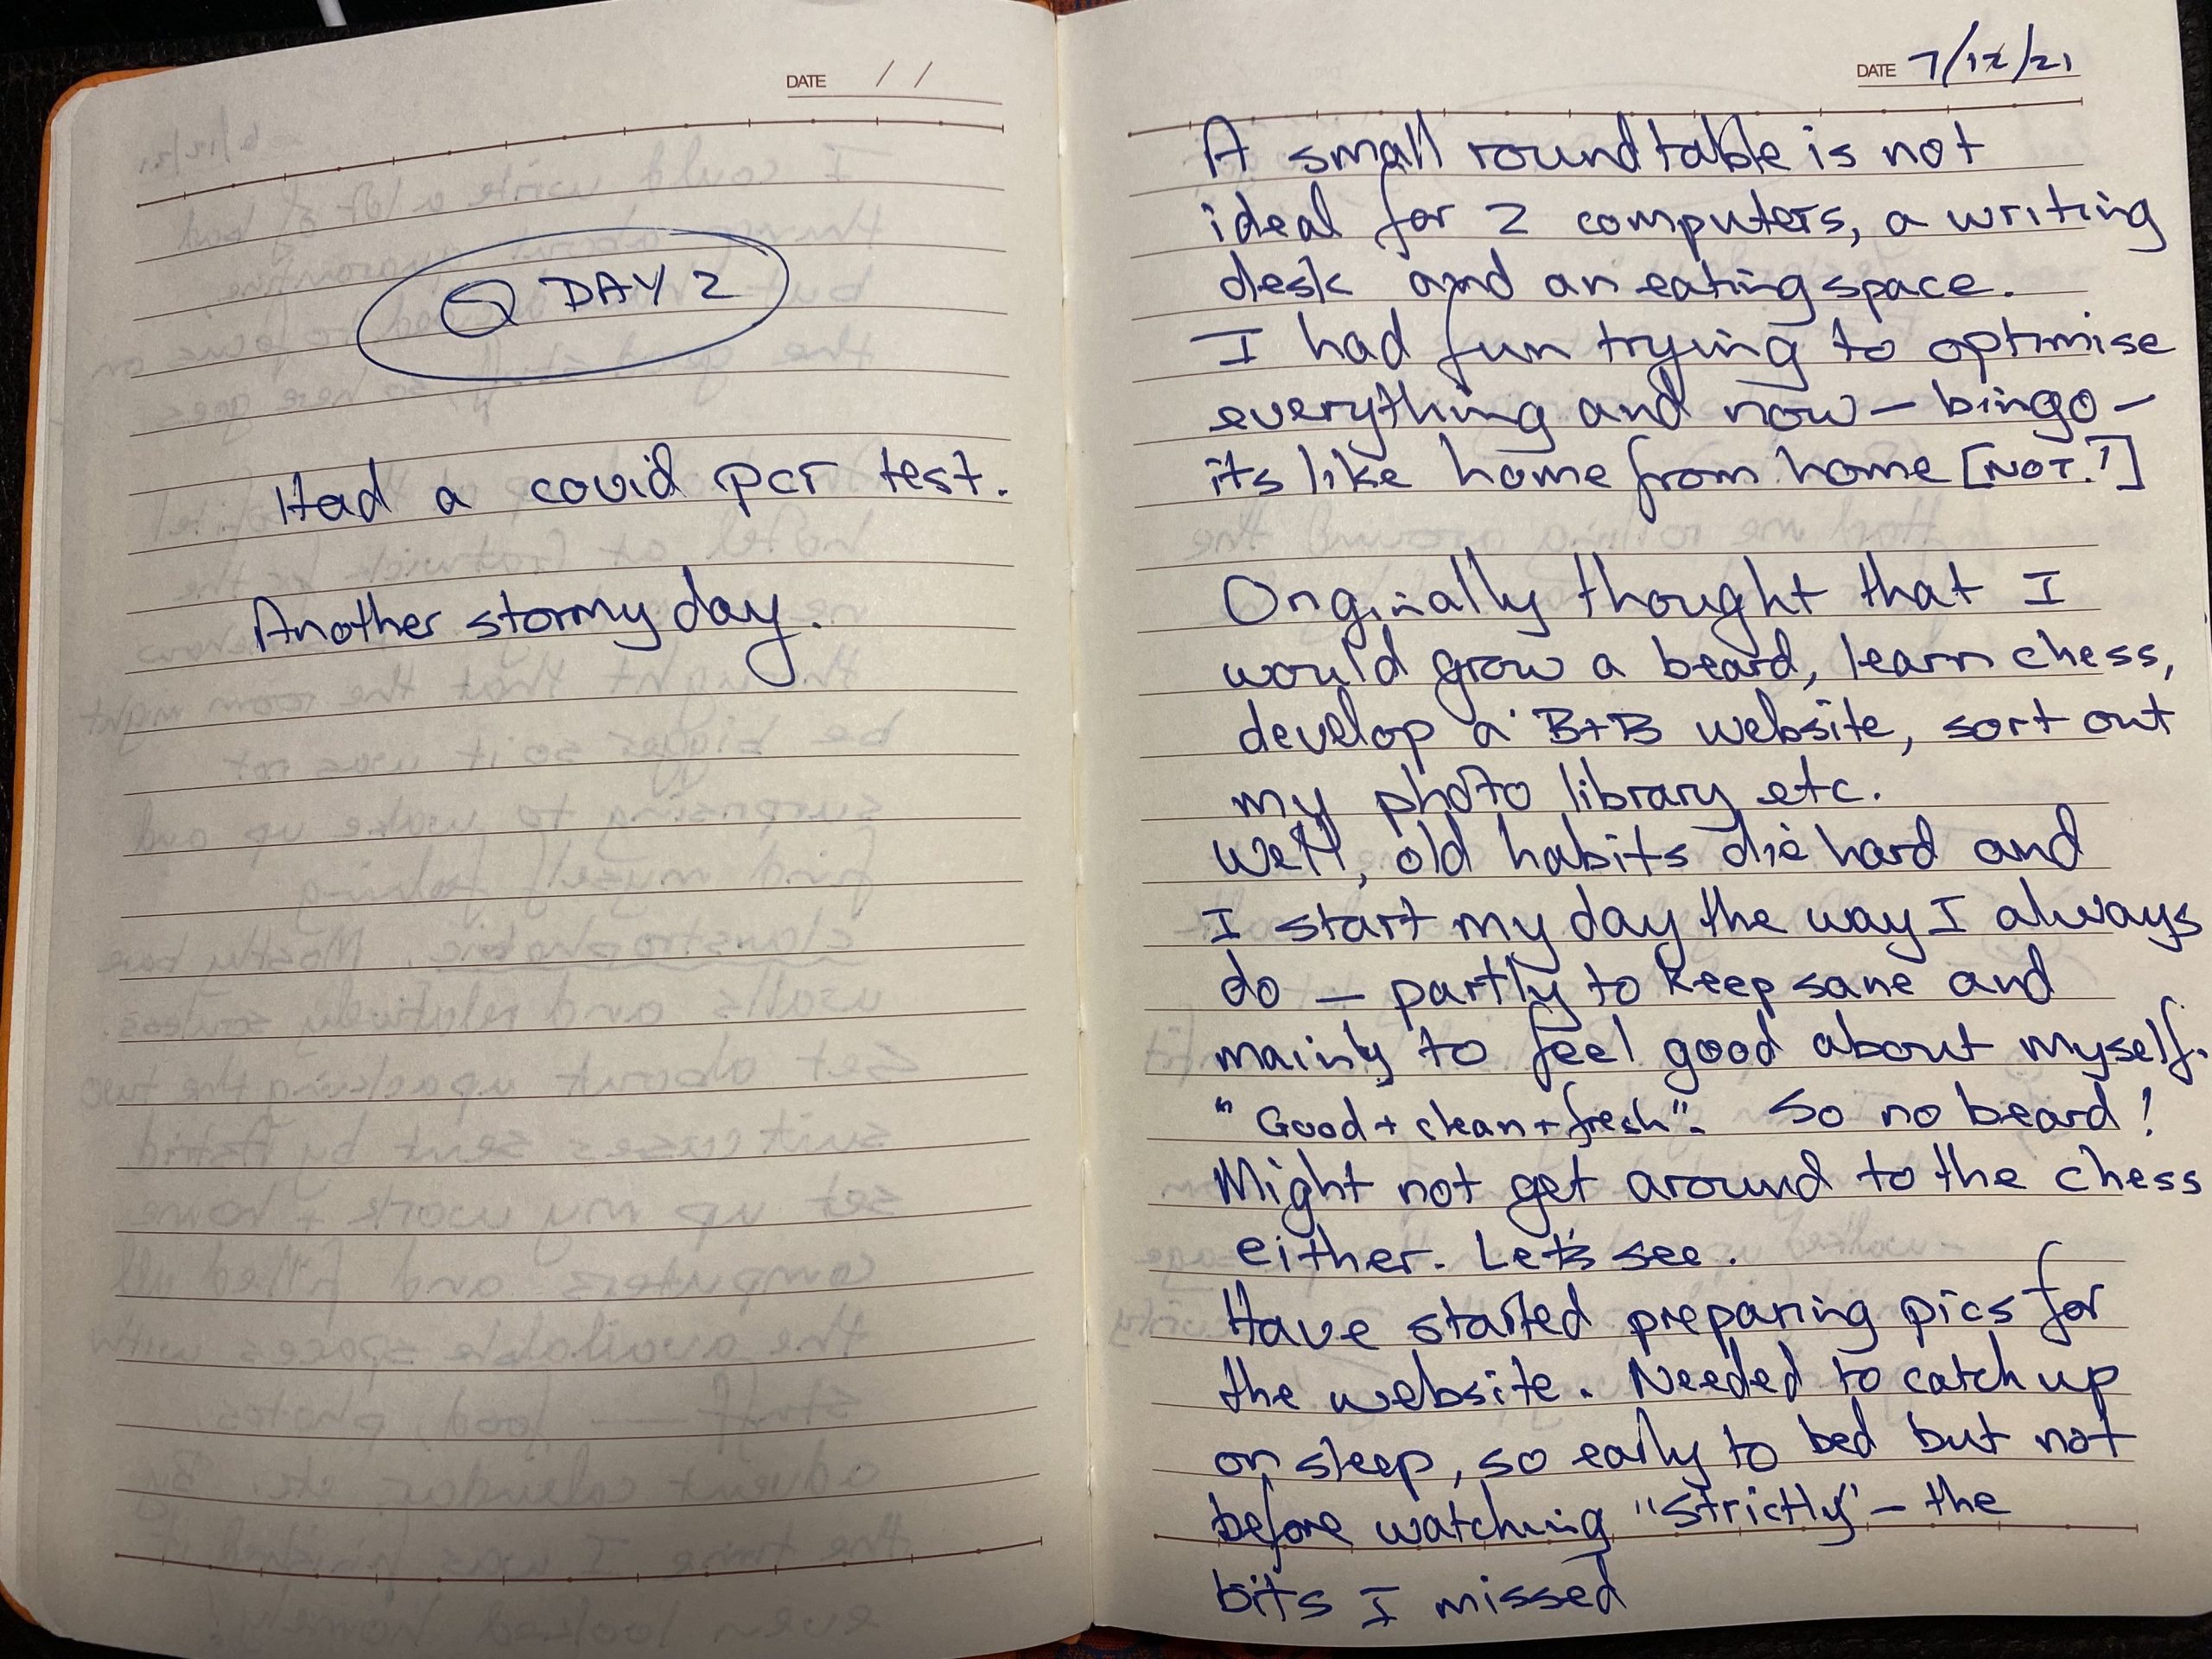 DATE / /
Q DAY 2
Had a covid pcr test.
Another stormy day.
DATE 7/12/21
A small round table is not
ideal for 2 computers, a writing
desk and an eating space.
I had fun trying to optimise
everything and now – bingo –
its like home from home [NOT!]
Originally thought that I
would grow a beard, learn chess,
develop a B+B website, sort out
my photo library etc.
Well, old habits die hard and
I start my day the way I always
do – partly to keep sane and
mainly to feel good about myself.
"Good + clean + fresh". So no beard!
Might not get around to the chess
either. Let's see.
Have started preparing pics for
the website. Needed to catch up
on sleep, so early to bed but not
before watching "Strictly" – the
bits I missed